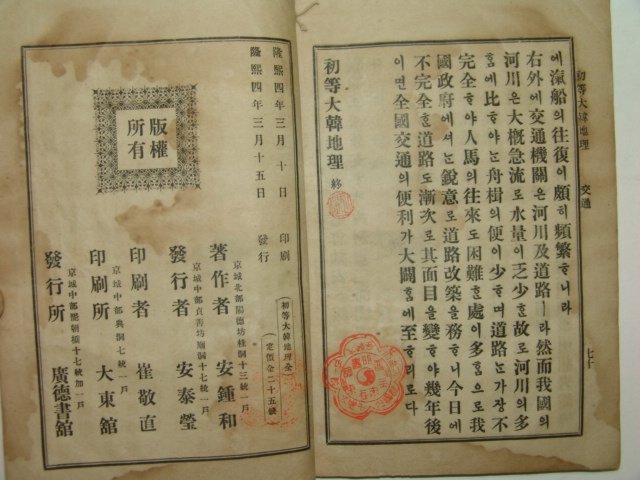 初等大韓地理 交通 七十
에滊船의往復이頗히頻繁ᄒᆞ니라
右外에交通機關은河川及道路ㅣ라然而我國의
河川은大槪急流로水量이乏少ᄒᆞ故로河川의多
ᄒᆞᆷ에比ᄒᆞ야ᄂᆞᆫ舟楫의便이少ᄒᆞ며道路ᄂᆞᆫ가장不
完全ᄒᆞ야人馬의往來도困難ᄒᆞᆫ處이多ᄒᆞᆷ으로我
國政府에셔ᄂᆞᆫ銳意로道路改築을務ᄒᆞ니今日에
不完全ᄒᆞᆫ道路도漸次로其面目을變ᄒᆞ야幾年後
이면全國交通의便利가大闢ᄒᆞᆷ에至ᄒᆞ리로다
初等大韓地理 終
隆熙四年三月十日 印刷
隆熙四年三月十五日 發行
版權所有
初等大韓地理全
定價金二十五錢
京城北部陽德坊桂洞十三統一戶
著作者 安鍾和
京城中部貞善坊廟洞十七統一戶
發行者 安泰瑩
京城中部典洞七統一戶
印刷者 崔敬直
印刷所 大東館
京城中部罷朝橋十七統加一戶
發行所 廣德書舘